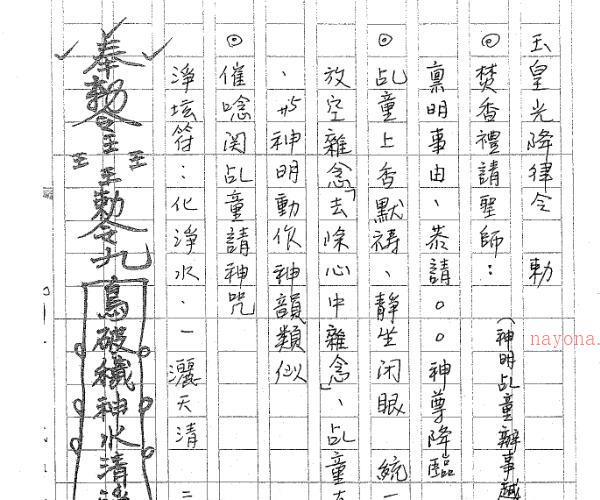 玉皇光降律令 勅
(神明乩童辦事越
◎焚香禮請聖師：
稟明事由、恭請。。神尊降臨
◎乩童上香默禱、靜坐闭眼 統一
放空雜念「去除心中雜念」、乩童
、 神明動作神韻類似
◎催唸関乩童請神咒
淨壇符：化淨水．一灑天清 二
奉勅令 勅令九鳥破穢神水清
nayona.